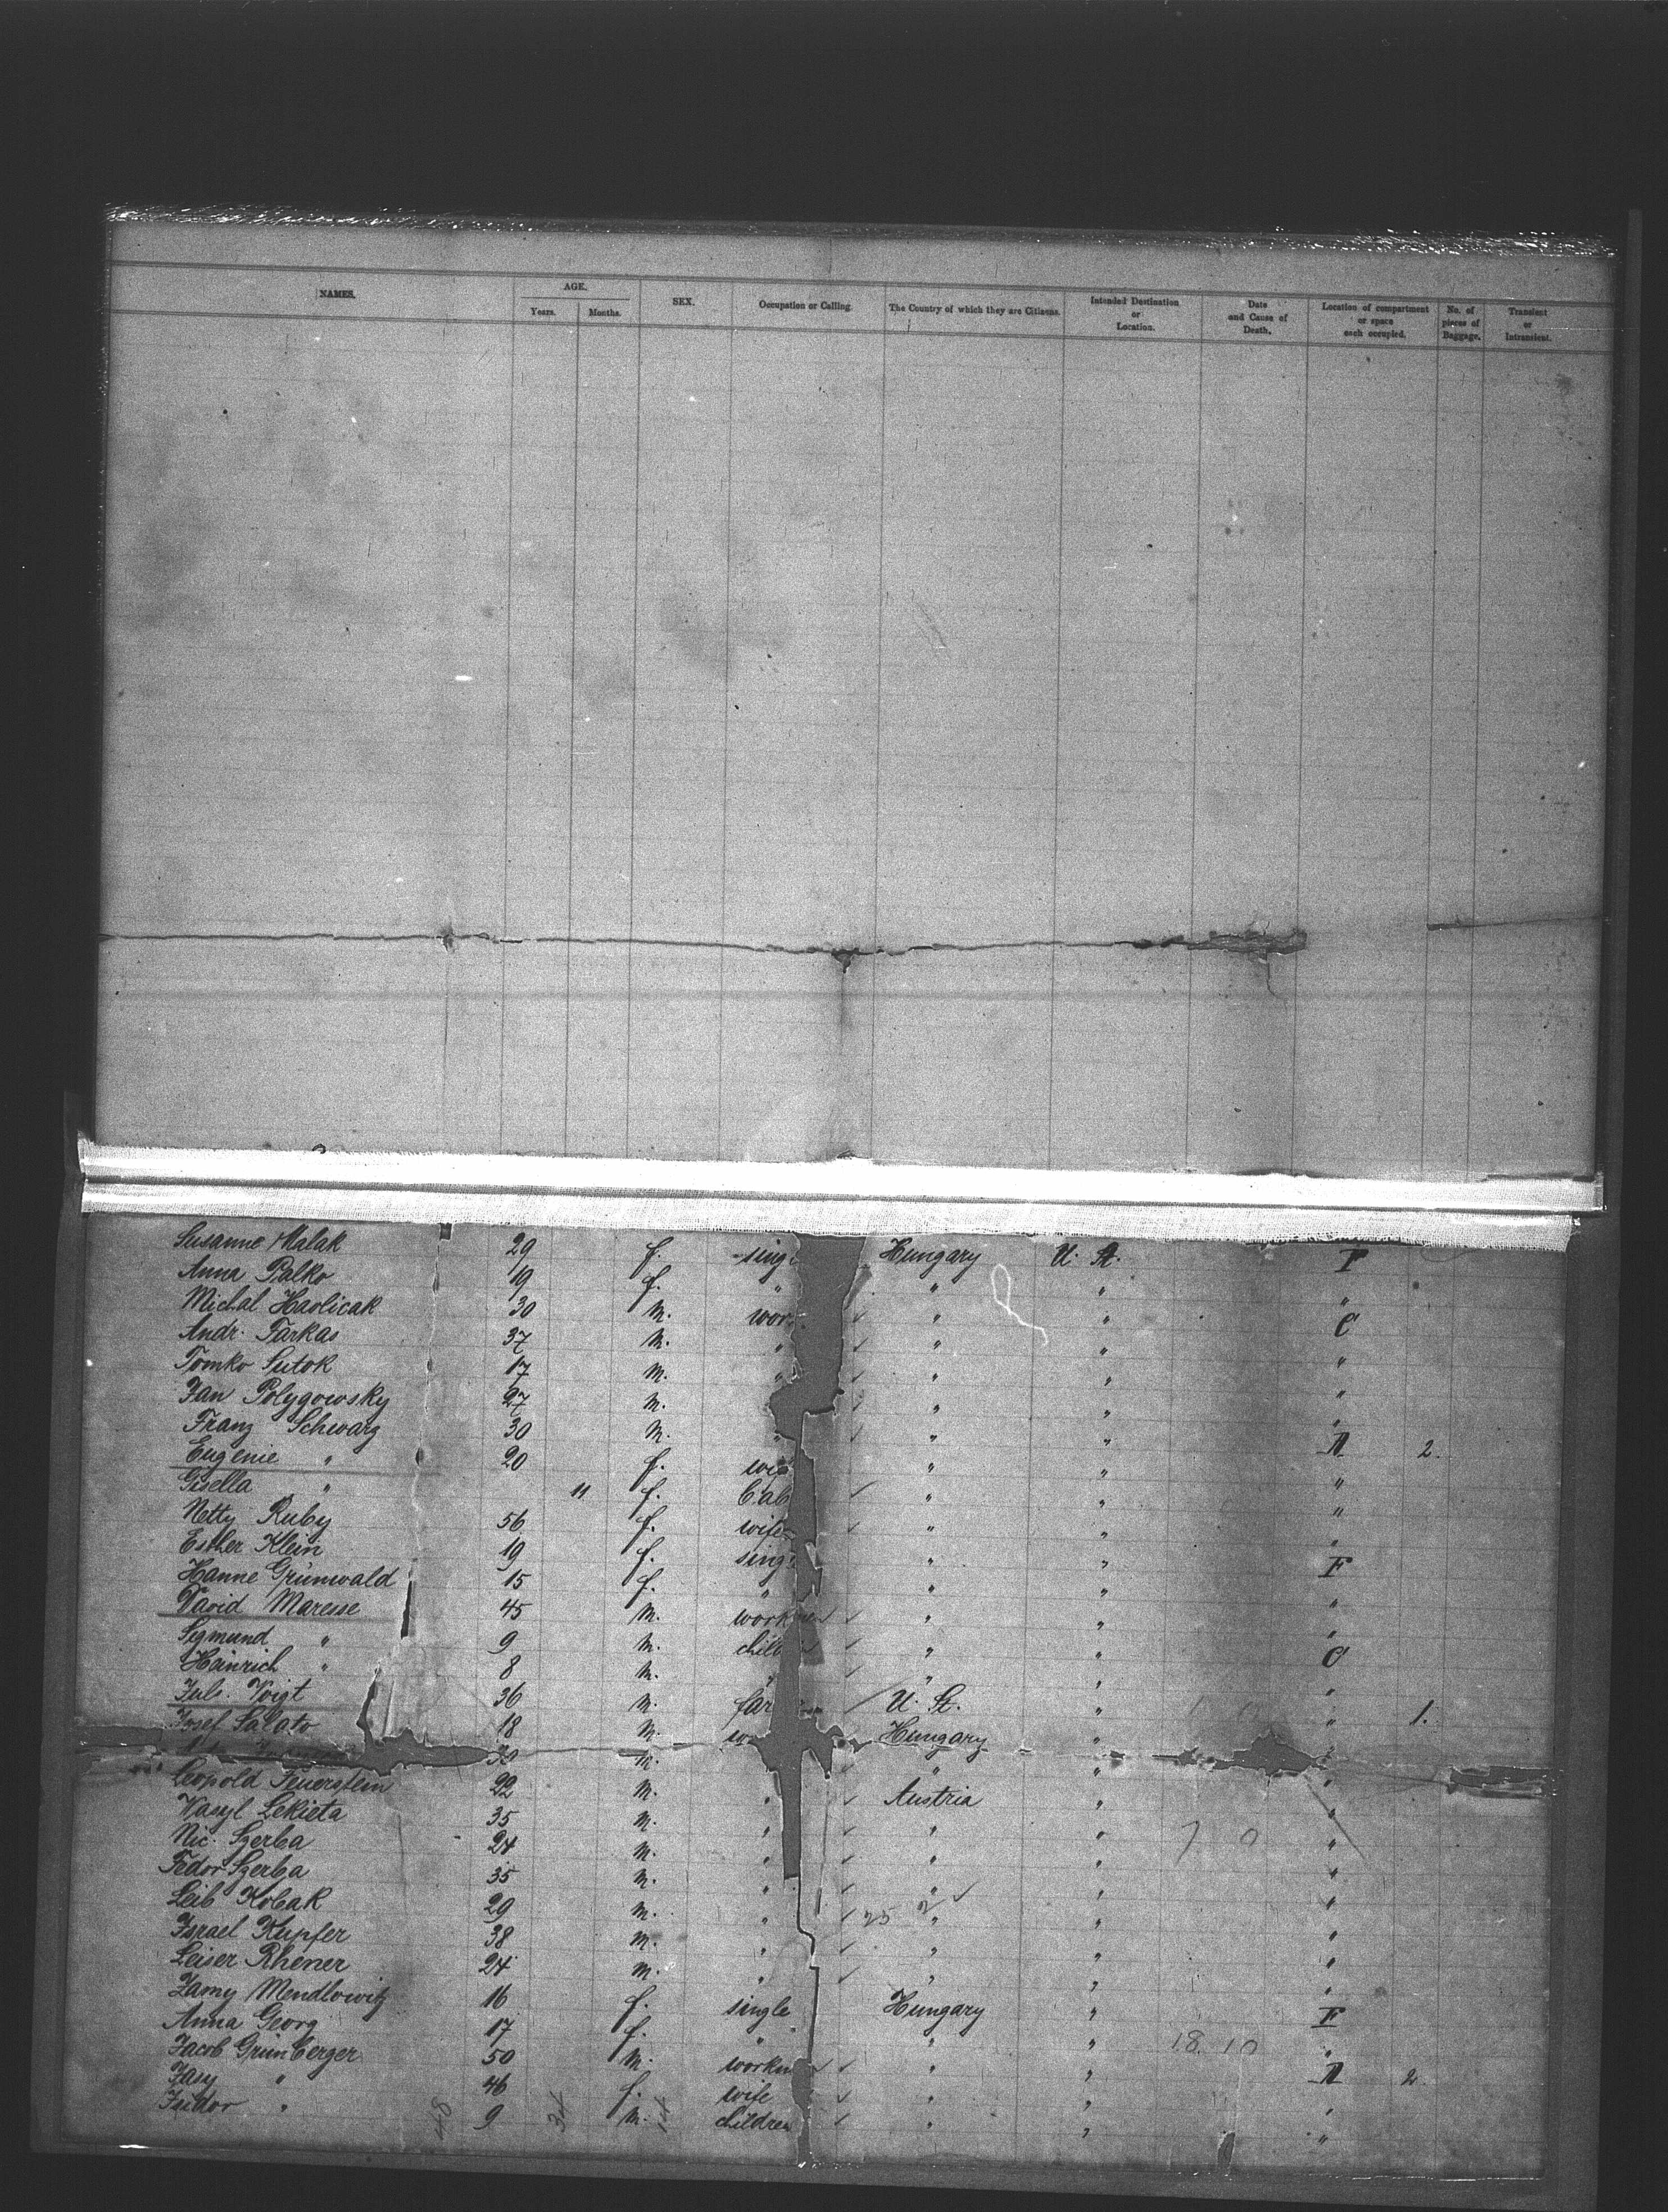 NAMES. AGE. SEX. Occupation or Calling. The Country of which they are Citizens. Intended Destination or Location. Date and Cause of Death. Location of compartment or space each occupied. No. of pieces of Baggage. Transient or Intransient.
Years. Months.
Susanne Malak 29 f. sing Hungary U. St. F
Anna Palko 19 f. " " " "
Michal Havlicak 30 m. wor " " C
Andr. Farkas 37 m. " " " "
Tomko Sutok 17 m. " " " "
Jan Polygowsky 27 m. " " "
Franz Schwarz 30 m. " " " A 2.
Eugenie " 20 f. wif " " "
Gisella " 11 f. bab " " "
Netty Ruby 56 f. wife " " "
Esther Klein 19 f. sing " " F
Hanne Grünwald 15 f. " " " "
David Maresse 45 m. work " " "
Segmund " 9 m. chil " " C
Heinrich " 8 m. " " " "
Juls. Voigt 36 m. far U. St. " " 1.
Josef Salato 18 m. wo Hungary " "
30 m. " " "
Leopold Feuerstein 22 m. " Austria " "
Wasyl Lekieta 35 m. " " " "
Nic. Szerba 24 m. " " " 7 0 "
Fedor Szerba 35 m. " " " "
Leib Kobak 29 m. " 25 " " "
Israel Kupfer 38 m. " " " "
Leiser Rhener 24 m. " " " "
Zamy Mendlowitz 16 f. single Hungary " F
Anna Georg 17 f. " " " 18 10 "
Jacob Grünberger 50 m. workm " " A 2.
Fasy " 46 f. wife " " "
Isidor " 9 m. children " " "
48 34 14